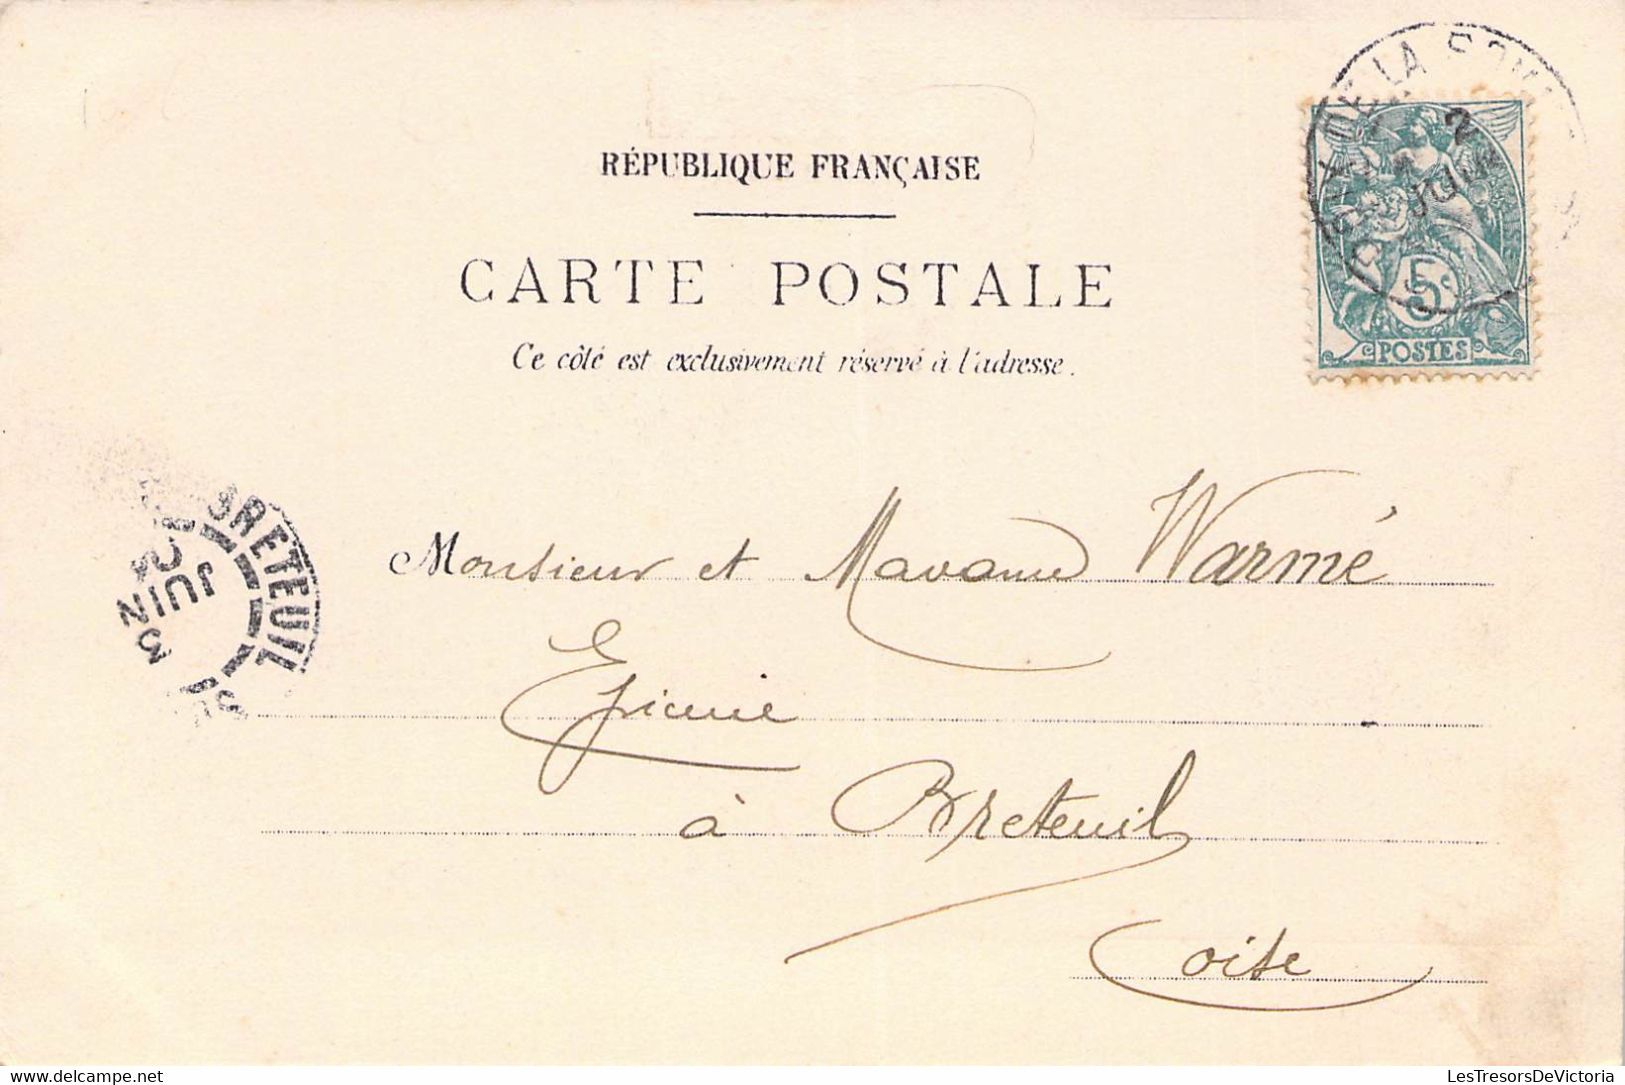 RÉPUBLIQUE FRANÇAISE
CARTE POSTALE
Ce côté est exclusivement réservé à l'adresse.
DE LA SOMME
2
JUIN
5c
POSTES
BRETEUIL
3
JUIN
Monsieur et Madame Warmé
Epicerie
à Breteuil
Oise
LesTresorsDeVictoria